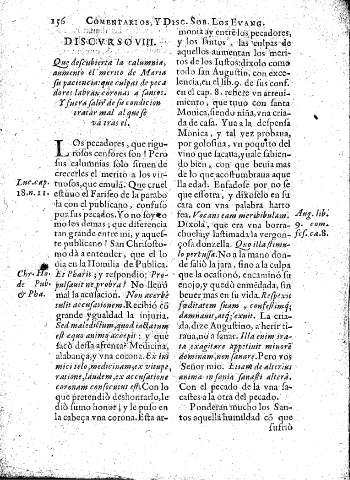 156 COMENTARIOS, Y DISC. SOB. LOS EVANG.
DISCVRSO VIII.
Que descubierta la calumnia,
aumentó el merito de Maria
su paciencia: que culpas de peca
dores labran coronas a santos.
Y fuera salir de su condicion
tratar mal al que se
va tras el.
LOs pecadores, que rigu-
rosos censores son! Pero
sus calumnias solo sirven de
crecerles el merito a los vir-
tuosos, que emulã. Que cruel
estuuo el Fariseo de la parabo
la con el publicano, confuso
por sus pecados. Yo no soy co
mo los demas; que diferencia
tan grande entre mi, y aques-
te publicano! San Chrisosto-
mo dà a entender, que el lo
dia en la Homilia de Publica.
Et Pharis; y respondiò; Pro-
pulsauit ne probra? No lleuò
mal la acusacion. Non acerbè
tulit accusationem. Recibiò cõ
grande ygualdad la injuria.
Sed maledictum, quod iactatum
est aquo animo accepit: y que
sacò desta afrenta? Medicina,
alabança, y vna corona. Ex ini
mici telo, medicinam, ex vitupe-
ratione, laudem, ex accusatione
coronam consecutus est. Con lo
que pretendiò deshonrarlo, le
diò sumo honor; y le puso en
la cabeça vna corona. Esta ar-
Luc. cap.
18. n. 11.
Chy. Ho.
de Pub.
& Pha.
montaỹ entre los pecadores,
y los santos, las culpas de
aquellos aumentan los meri-
tos de los Iustos: dixolo como
todo san Augustin, con exce-
lencia, en el lib. 9. de sus conf.
en el cap. 8. refiere vn atreui-
miento, que tuuo con santa
Monica, siendo niña, vna cria-
da de casa. Yua a la despensa
Monica, y tal vez probaua,
por golosina, vn poquito del
vino que sacaua, y uale sabien-
do bien, con que beuia mas
de lo que acostumbraua aque
lla edad. Enfadose por no se
que essotra, y dixoselo en su
cara con vna palabra harto
fea. Vocans eam meribibulam.
Dixola, que era vna borra-
chuela, y lastimada la vergon-
çosa donzella. Quo illa stimu-
lo pertusa. No a la mano don-
de saliò la jara, sino a la culpa
que la ocasionò, encaminò su
enojo, y quedò enmẽdada, sin
beuer mas en su vida. Respexit
fæditatem suam, confestimq;
damnauit, atq; exuit. La cria-
da, dize Augustino, a herir ti-
raua, no a sanar. Illa enim ira-
ta exagitare appetiuit minorẽ
dominam, non sanare. Pero vos
Señor mio. Etiam de alterius
anima insania sanasti alterã.
Con el pecado de la vna sa-
castes a la otra del pecado.
Ponderan mucho los San-
tos aquella humildad cõ que
sufriò
Aug. lib.
9. con-
fes. ca. 8.